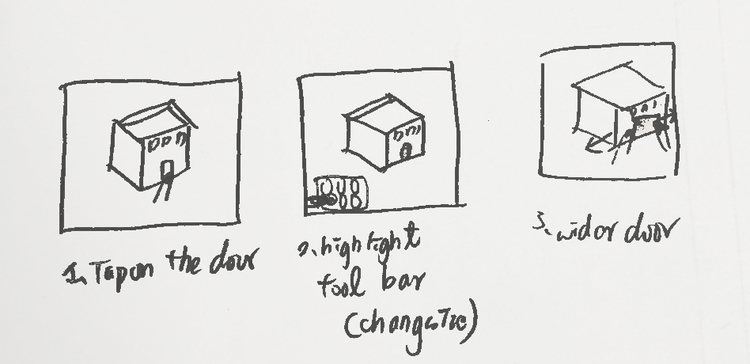 1. Tap on the door
2. highlight
tool bar
3. wider door